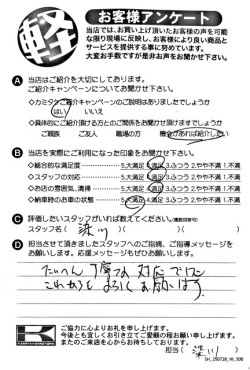 軽
お客様アンケート
当店では、お買い上げ頂いたお客様の声を可能
な限り現場に反映し、お客様により良い商品と
サービスを提供する事に努めています。
大変お手数ですが是非お声をお聞かせ下さい。
A 当店はご紹介を大切にしてあります。
ご紹介キャンペーンについてお聞かせ下さい。
◇カミタケご紹介キャンペーンのご説明はありましたでしょうか
はい いいえ
◇具体的にご紹介頂ける方とのご関係をお聞かせ頂けますでしょうか
ご親族 ご友人 職場の方 機会があれば紹介したい
B 当店を実際にご利用になった印象をお聞かせ下さい。
◇総合的な満足度 5.大満足 4.満足 3.ふつう 2.やや不満 1.不満
◇スタッフの対応 5.大満足 4.満足 3.ふつう 2.やや不満 1.不満
◇お店の雰囲気、清掃 5.大満足 4.満足 3.ふつう 2.やや不満 1.不満
◇納車時のお車の状態 5.大満足 4.満足 3.ふつう 2.やや不満 1.不満
C 評価したいスタッフがいれば教えてください。(複数回答可)
スタッフ名( 深川 )
D 担当させて頂きましたスタッフへのご指摘、ご指導メッセージを
お願いします。応援メッセージもぜひお願いします。
たいへん丁寧な対応でした
これからもよろしくお願いします。
K
ご協力に心よりお礼を申し上げます。
今後とも宜しくお引き立てご愛顧の程お願い申し上げます。
またのご来店を心からお待ちしております。
担当( 深川 )
SH_250728_HI_500